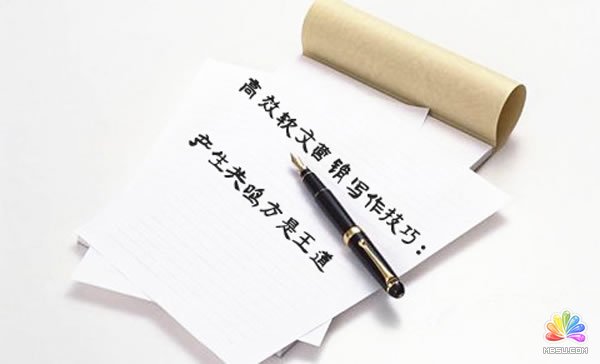 高效软文营销写作技巧：
产生共鸣方是王道
MGSU.COM